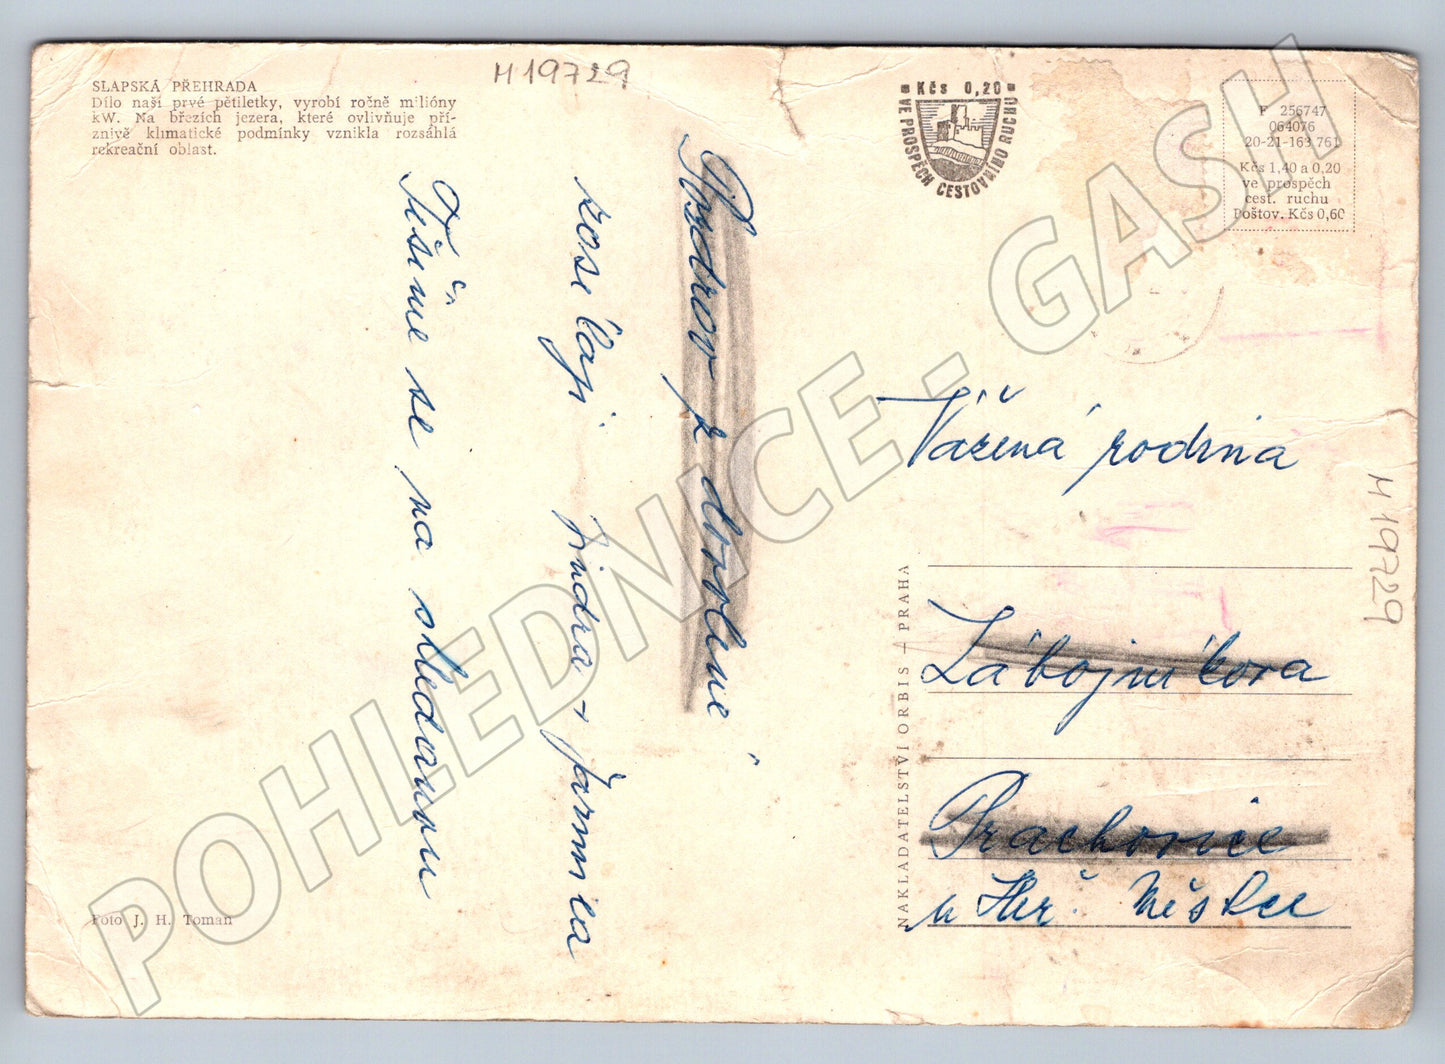 SLAPSKÁ PŘEHRADA
Dílo naší prvé pětiletky, vyrobí ročně milióny
kW. Na březích jezera, které ovlivňuje pří-
znivě klimatické podmínky vznikla rozsáhlá
rekreační oblast.
H 19729
Kčs 0,20
VE PROSPĚCH CESTOVNÍHO RUCHU
F 256747
064076
20-21-163 761
Kčs 1,40 a 0,20
ve prospěch
cest. ruchu
Poštov. Kčs 0,60
Pozdrav z dovolené
posílají Jindra + Jarmila
Těšíme se na shledanou
Vážená rodina
Zábojníkova
Prachovice
u Heř. Městce
NAKLADATELSTVÍ ORBIS – PRAHA
H 19729
Foto J. H. Toman
POHLEDNICE - GASH